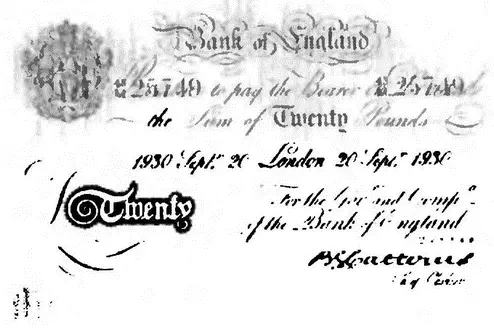 Bank of England
25749 to pay the Bearer 25749
the Sum of Twenty Pounds
1930 Septr. 20 London 20 Septr. 1930
Twenty
For the Govr. and Compa.
of the Bank of England
B.G. Catterns